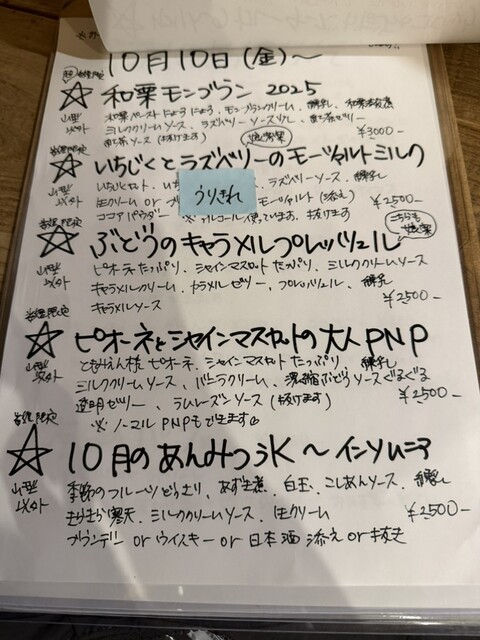 10月10日(金)〜
和栗モンブラン 2025
和栗ペーストにょろにょろ、モンブランクリーム、練乳、和栗渋皮煮
ミルククリームソース、ラズベリーソース少し、ほうじ茶ゼリー
ほうじ茶ソース(抜けます)
¥3000-
数量限定
山型以外
いちじくとラズベリーのモーツァルトミルク
いちじくコンポート、いち
ラズベリーソース、練乳
生クリーム or
モーツァルト(添え)
ココアパウダー
※アルコール使っています。抜けます
¥2500-
うりきれ
数量限定
山型以外
ぶどうのキャラメルプレッツェル
こちらも
ピオーネたっぷり、シャインマスカットたっぷり、ミルククリームソース
キャラメルクリーム、カラメルゼリー、プレッツェル、練乳
キャラメルソース
¥2500-
数量限定
山型以外
ピオーネとシャインマスカットの大人PNP
ピオーネ、シャインマスカットたっぷり、練乳
ミルククリームソース、バニラクリーム、濃縮ぶどうソースぐるぐる
透明ゼリー、ラムレーズンソース(抜けます)
※ノーマルPNPもできます
¥2500-
数量限定
山型以外
10月のあんみつうK〜インソムニア
季節のフルーツどっさり、あずき煮、白玉、こしあんソース、練乳
きらきら寒天、ミルククリームソース、生クリーム
ブランデー or ウイスキー or 日本酒 添え or 抜き
¥2500-